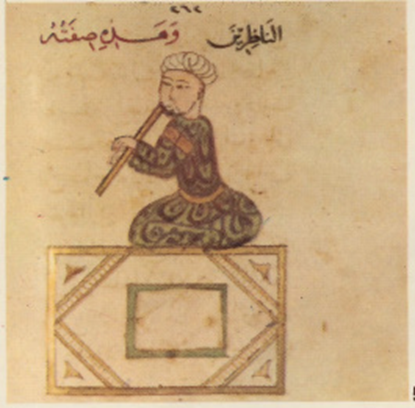 ٢٦٢
النَاظِرِيْنَ وَهَذِهِ صِفَتُهُ